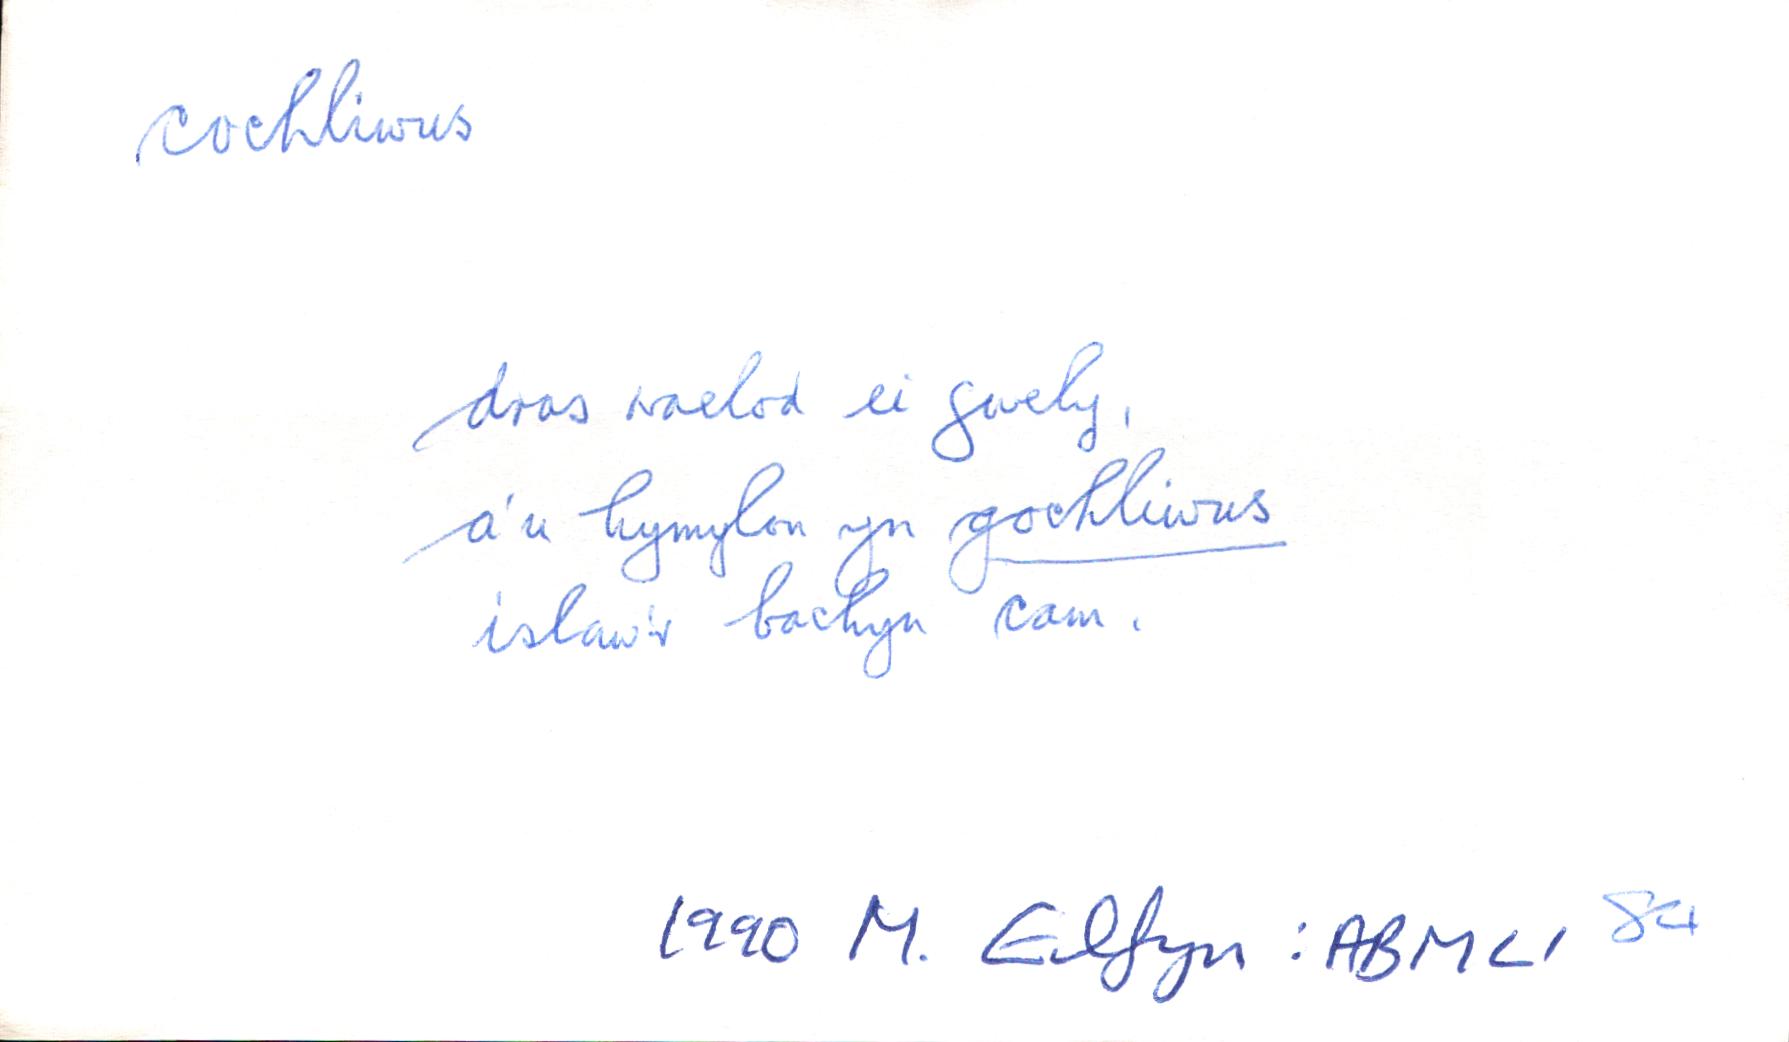 cochliwus
dros waelod ei gwely,
a'u hymylon yn gochliwus
islaw'r bachyn cam.
1990 M. Elfyn : ABMLI 84